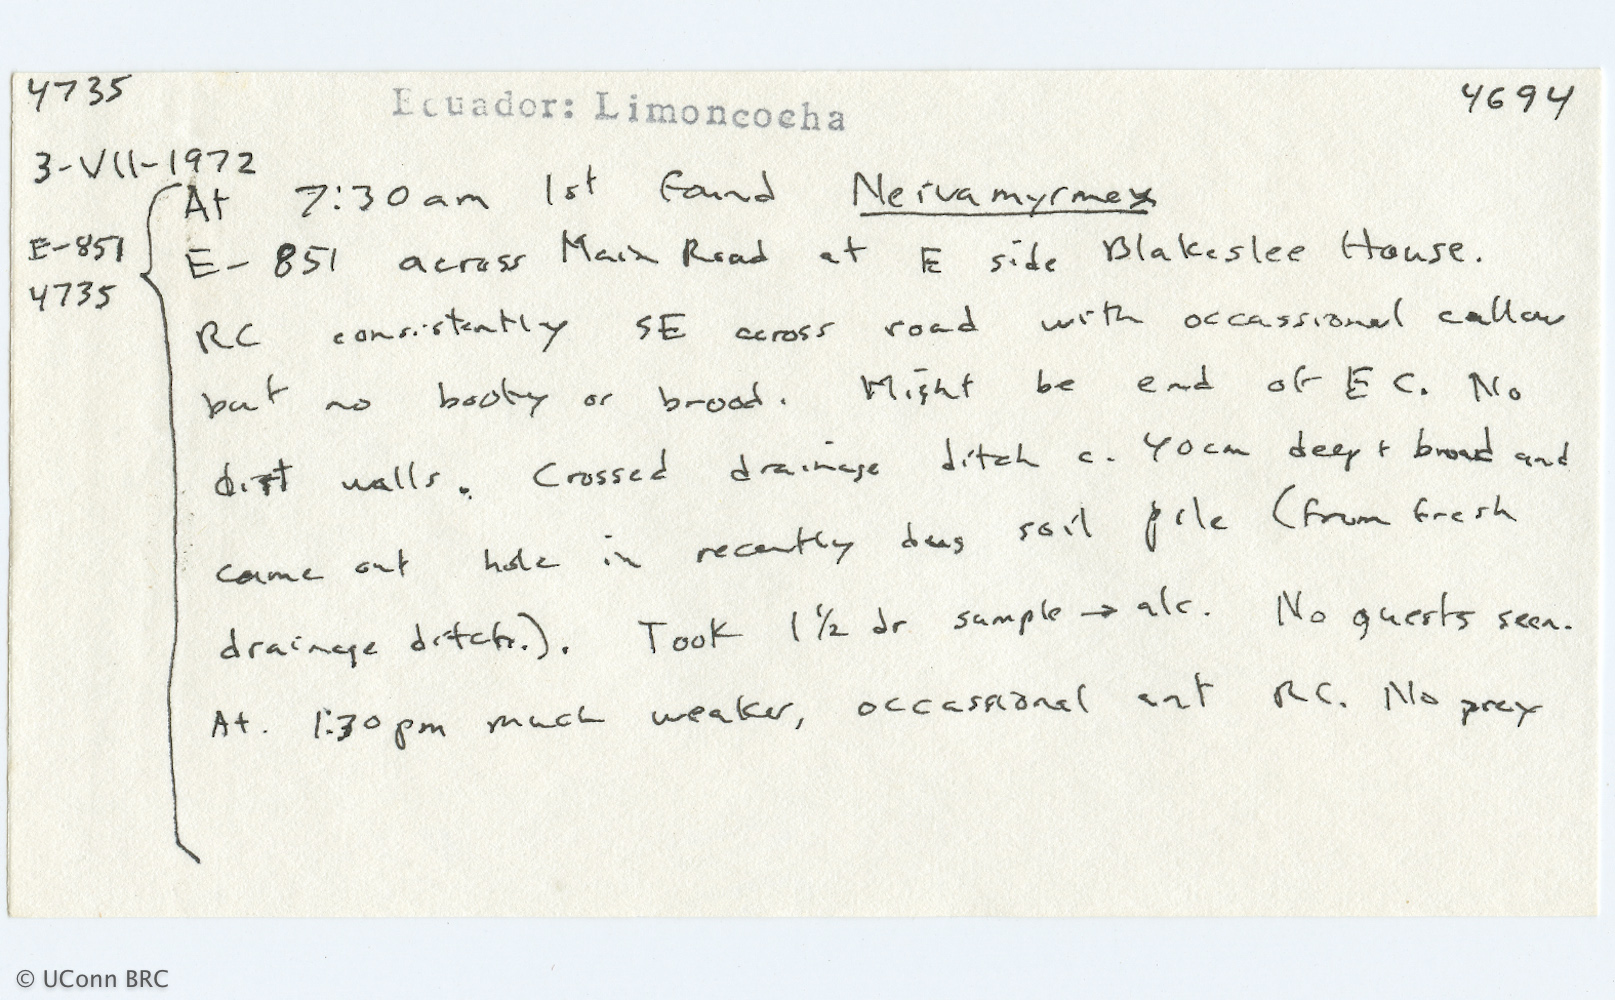 4735
Ecuador: Limoncocha
4694
3-VII-1972
At 7:30am 1st found Neivamyrmex
E-851
4735
E-851 across Main Road at E side Blakeslee House.
RC consistently SE across road with occassional callow
but no booty or brood. Might be end of EC. No
dirt walls. Crossed drainage ditch c. 40cm deep + broad and
came out hole in recently dug soil pile (from fresh
drainage ditch.). Took 1½ dr sample → alc. No guests seen.
At. 1:30pm much weaker, occassional ant RC. No prey
© UConn BRC